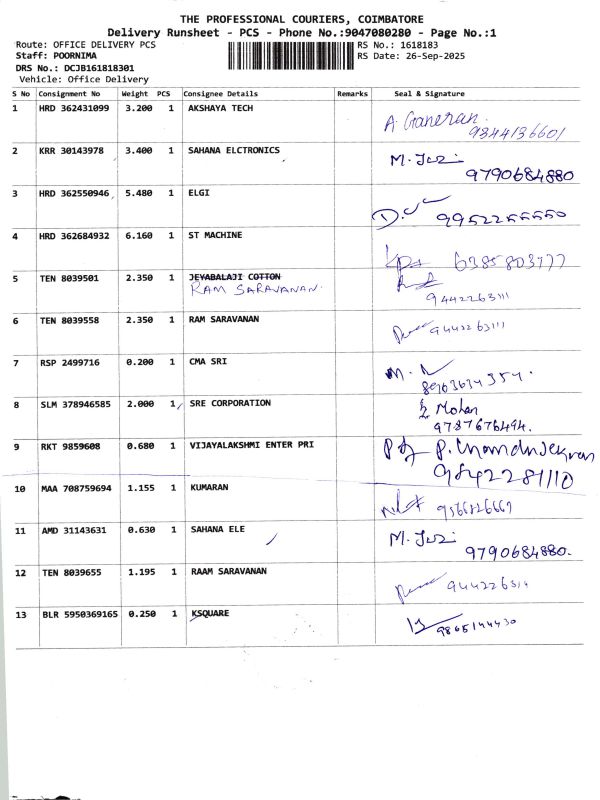 THE PROFESSIONAL COURIERS, COIMBATORE
Delivery Runsheet - PCS - Phone No.:9047080280 - Page No.:1
Route: OFFICE DELIVERY PCS RS No.: 1618183
Staff: POORNIMA RS Date: 26-Sep-2025
DRS No.: DCJB161818301
Vehicle: Office Delivery
S No Consignment No Weight PCS Consignee Details Remarks Seal & Signature
1 HRD 362431099 3.200 1 AKSHAYA TECH
9344136601
2 KRR 30143978 3.400 1 SAHANA ELCTRONICS
9790684880
3 HRD 362550946 5.480 1 ELGI
4 HRD 362684932 6.160 1 ST MACHINE
6385803777
5 TEN 8039501 2.350 1 JEYABALAJI COTTON
RAM SARAVANAN.
9442263111
6 TEN 8039558 2.350 1 RAM SARAVANAN
9442263111
7 RSP 2499716 0.200 1 CMA SRI
8 SLM 378946585 2.000 1 SRE CORPORATION
Mohan
9787676494.
9 RKT 9859608 0.680 1 VIJAYALAKSHMI ENTER PRI
9842281110
10 MAA 708759694 1.155 1 KUMARAN
9566826667
11 AMD 31143631 0.630 1 SAHANA ELE
9790684880.
12 TEN 8039655 1.195 1 RAAM SARAVANAN
13 BLR 5950369165 0.250 1 KSQUARE
9865144430